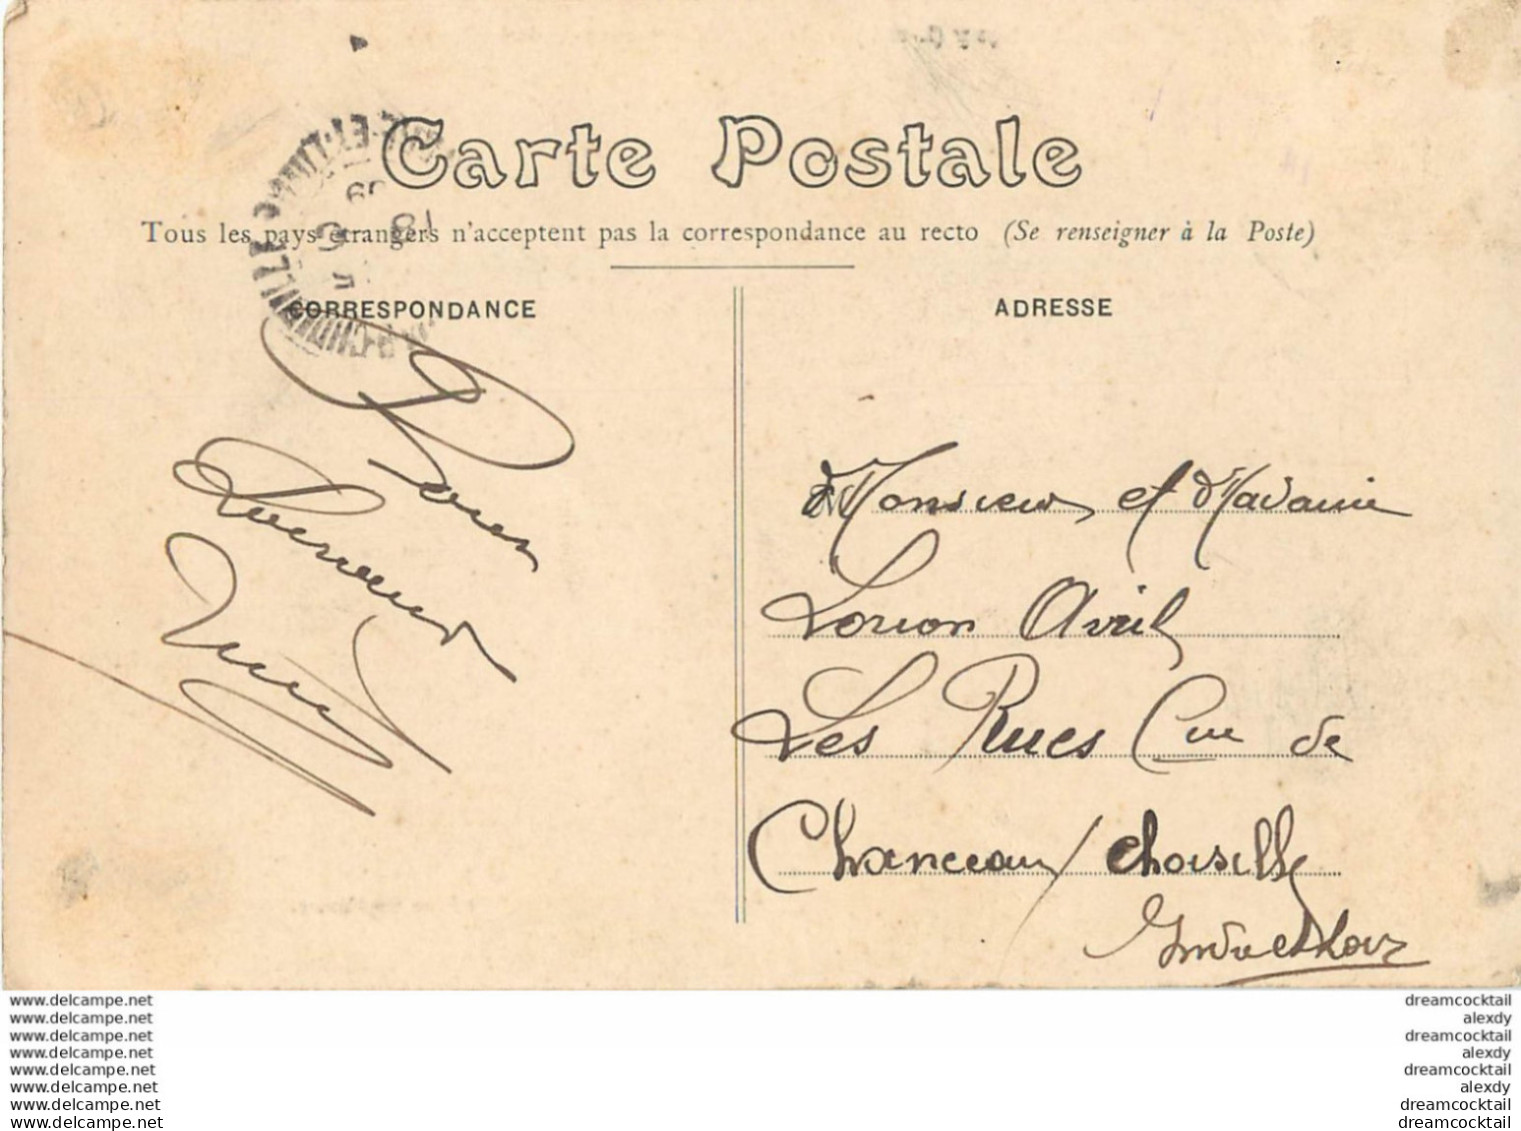 Carte Postale
Tous les pays étrangers n'acceptent pas la correspondance au recto (Se renseigner à la Poste)
CORRESPONDANCE
ADRESSE
Monsieur et Madame
Avril
Les Rues Cne de
Chanceau / Choisille
Indre et Loir
www.delcampe.net
www.delcampe.net
www.delcampe.net
www.delcampe.net
www.delcampe.net
www.delcampe.net
www.delcampe.net
www.delcampe.net
dreamcocktail
alexdy
dreamcocktail
alexdy
dreamcocktail
alexdy
dreamcocktail
dreamcocktail